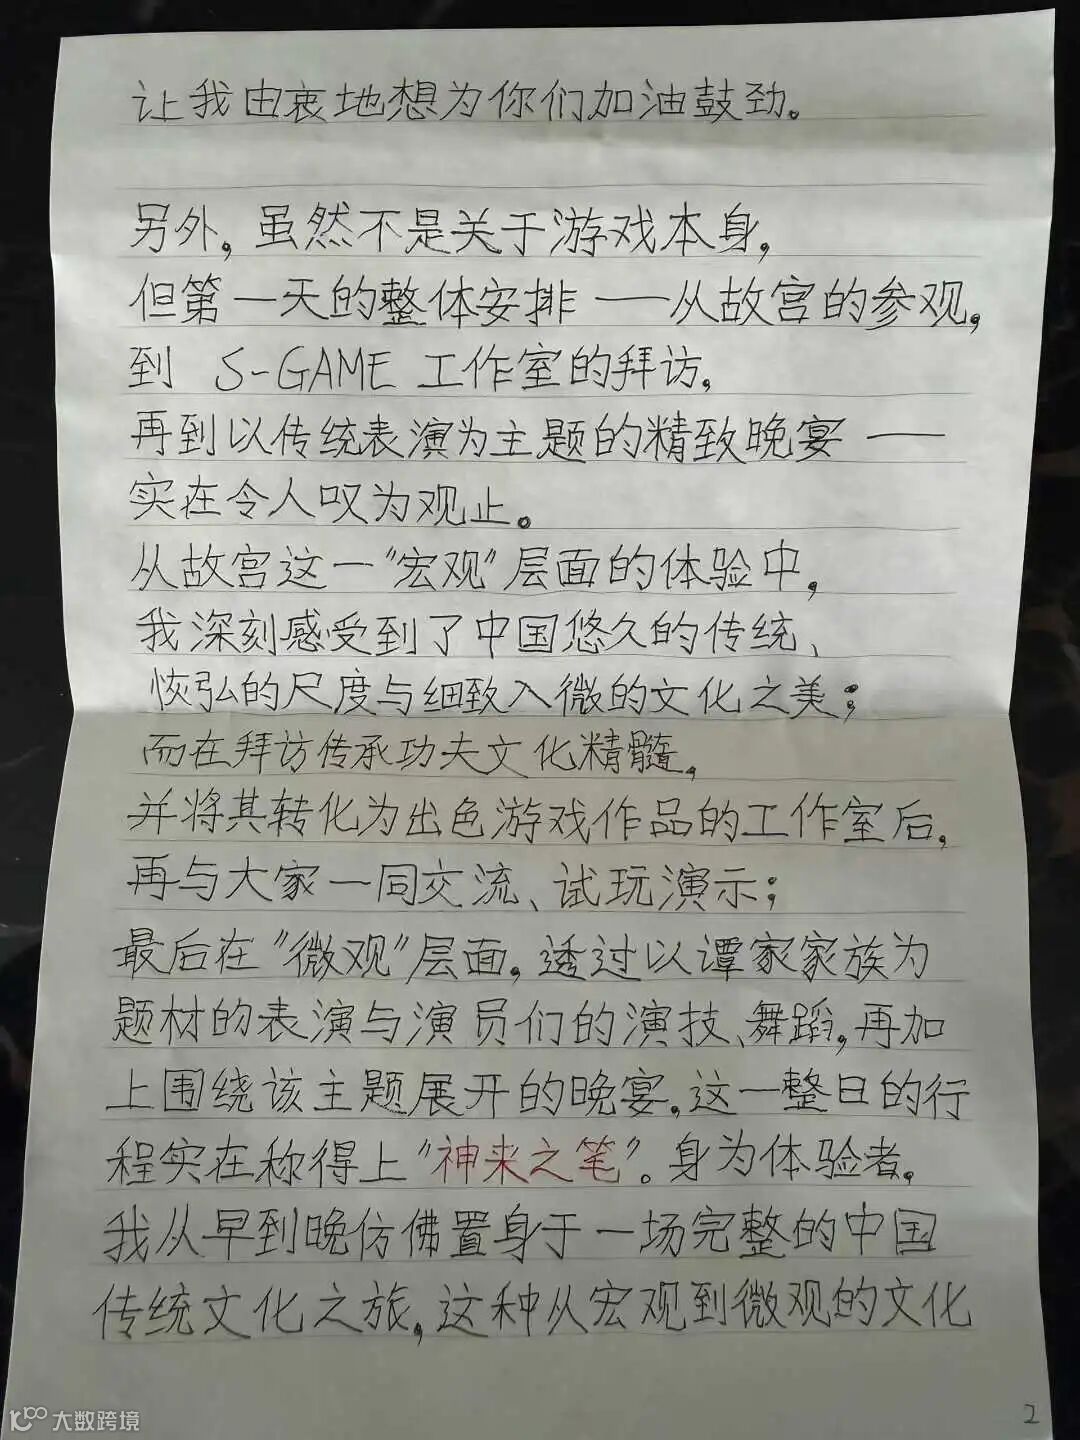 让我由衷地想为你们加油鼓劲。
另外，虽然不是关于游戏本身，
但第一天的整体安排 ——从故宫的参观，
到 S-GAME 工作室的拜访，
再到以传统表演为主题的精致晚宴 ——
实在令人叹为观止。
从故宫这一“宏观”层面的体验中，
我深刻感受到了中国悠久的传统、
恢弘的尺度与细致入微的文化之美；
而在拜访传承功夫文化精髓，
并将其转化为出色游戏作品的工作室后，
再与大家一同交流、试玩演示；
最后在“微观”层面，透过以谭家家族为
题材的表演与演员们的演技、舞蹈，再加
上围绕该主题展开的晚宴，这一整日的行
程实在称得上“神来之笔”。身为体验者，
我从早到晚仿佛置身于一场完整的中国
传统文化之旅，这种从宏观到微观的文化
2
大数跨境